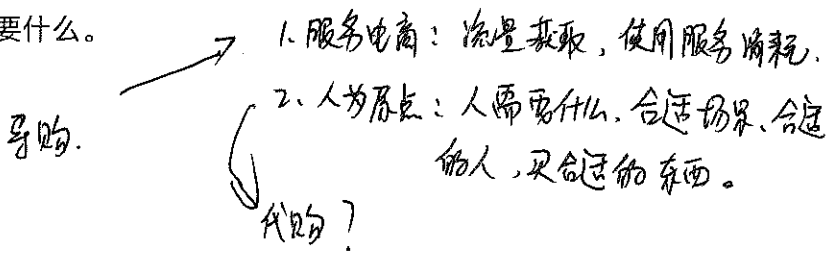 要什么。
1、服务电商：流量获取，使用服务消耗.
导购.
2、人为原点：人需要什么、合适场景、合适
的人，买合适的东西。
代购？